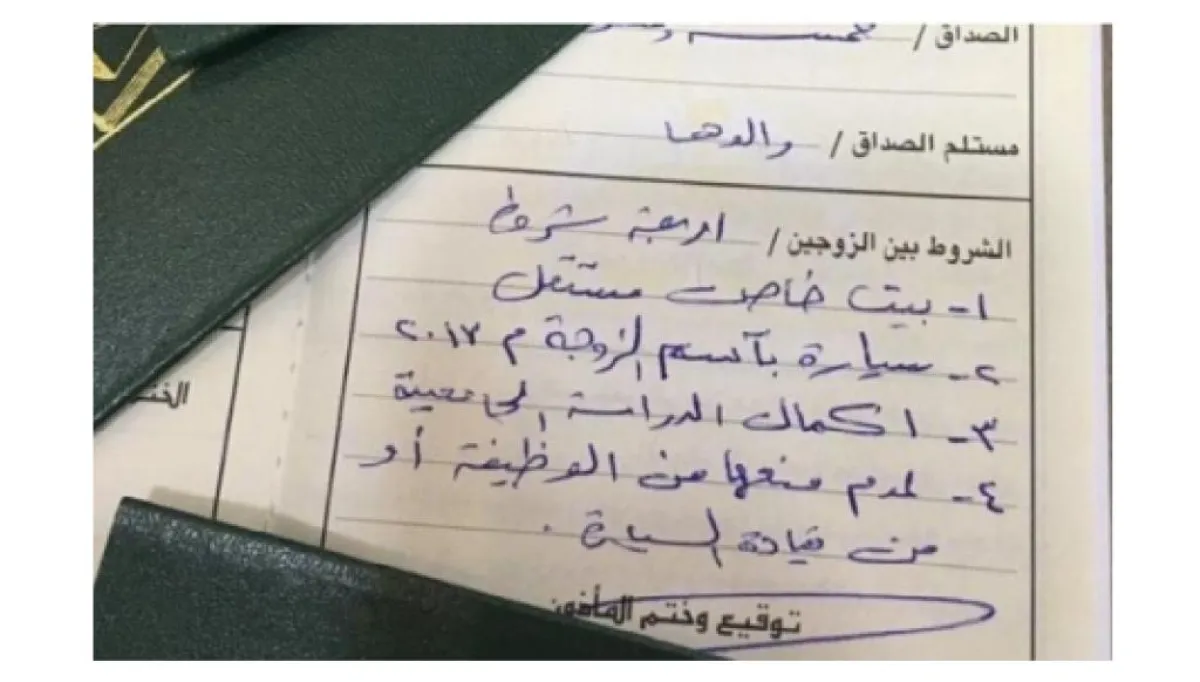 الصداق / خمسة
مستلم الصداق / والدها
الشروط بين الزوجين / اربعة شروط
١- بيت خاص مستقل
٢- سيارة بآسم الزوجة م ٢٠١٧
٣- اكمال الدراسة الجامعية
٤- عدم منعها من الوظيفة أو
من قيادة السيارة .
توقيع وختم المأذون